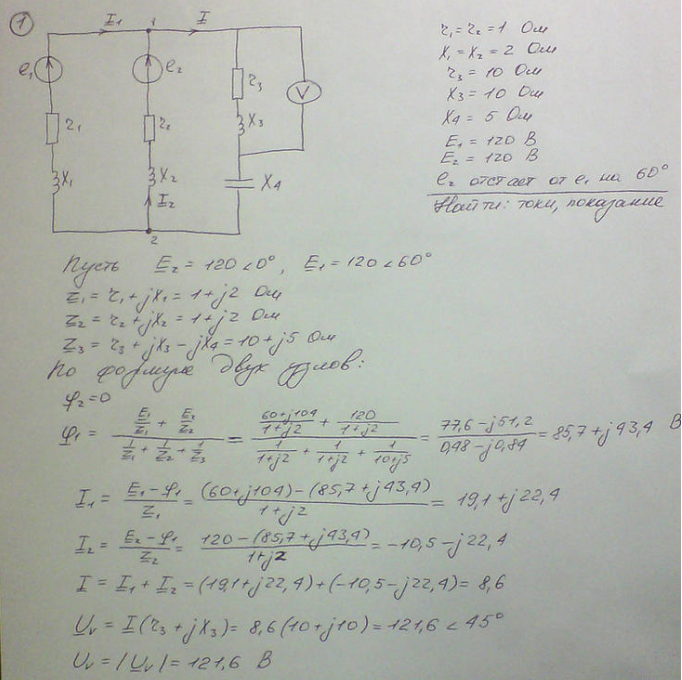 1
I₁ 1 I
e₁ e₂ r₃ V
r₁ r₂ X₃
X₁ X₂ X₄
I₂
2
r₁ = r₂ = 1 Ом
X₁ = X₂ = 2 Ом
r₃ = 10 Ом
X₃ = 10 Ом
X₄ = 5 Ом
E₁ = 120 В
E₂ = 120 В
e₂ отстает от e₁ на 60°
Найти: токи, показание
Пусть E₂ = 120∠0°, E₁ = 120∠60°
Z₁ = r₁ + jX₁ = 1 + j2 Ом
Z₂ = r₂ + jX₂ = 1 + j2 Ом
Z₃ = r₃ + jX₃ − jX₄ = 10 + j5 Ом
По формуле двух узлов:
φ₂ = 0
φ₁ = (E₁/Z₁ + E₂/Z₂)/(1/Z₁ + 1/Z₂ + 1/Z₃) = ((60+j104)/(1+j2) + 120/(1+j2))/(1/(1+j2) + 1/(1+j2) + 1/(10+j5)) = (77,6−j51,2)/(0,48−j0,84) = 85,7+j43,4 В
I₁ = (E₁−φ₁)/Z₁ = ((60+j104)−(85,7+j43,4))/(1+j2) = 19,1+j22,4
I₂ = (E₂−φ₁)/Z₂ = (120−(85,7+j43,4))/(1+j2) = −10,5−j22,4
I = I₁ + I₂ = (19,1+j22,4)+(−10,5−j22,4) = 8,6
Uᵥ = I(r₃+jX₃) = 8,6(10+j10) = 121,6∠45°
Uᵥ = |Uᵥ| = 121,6 В